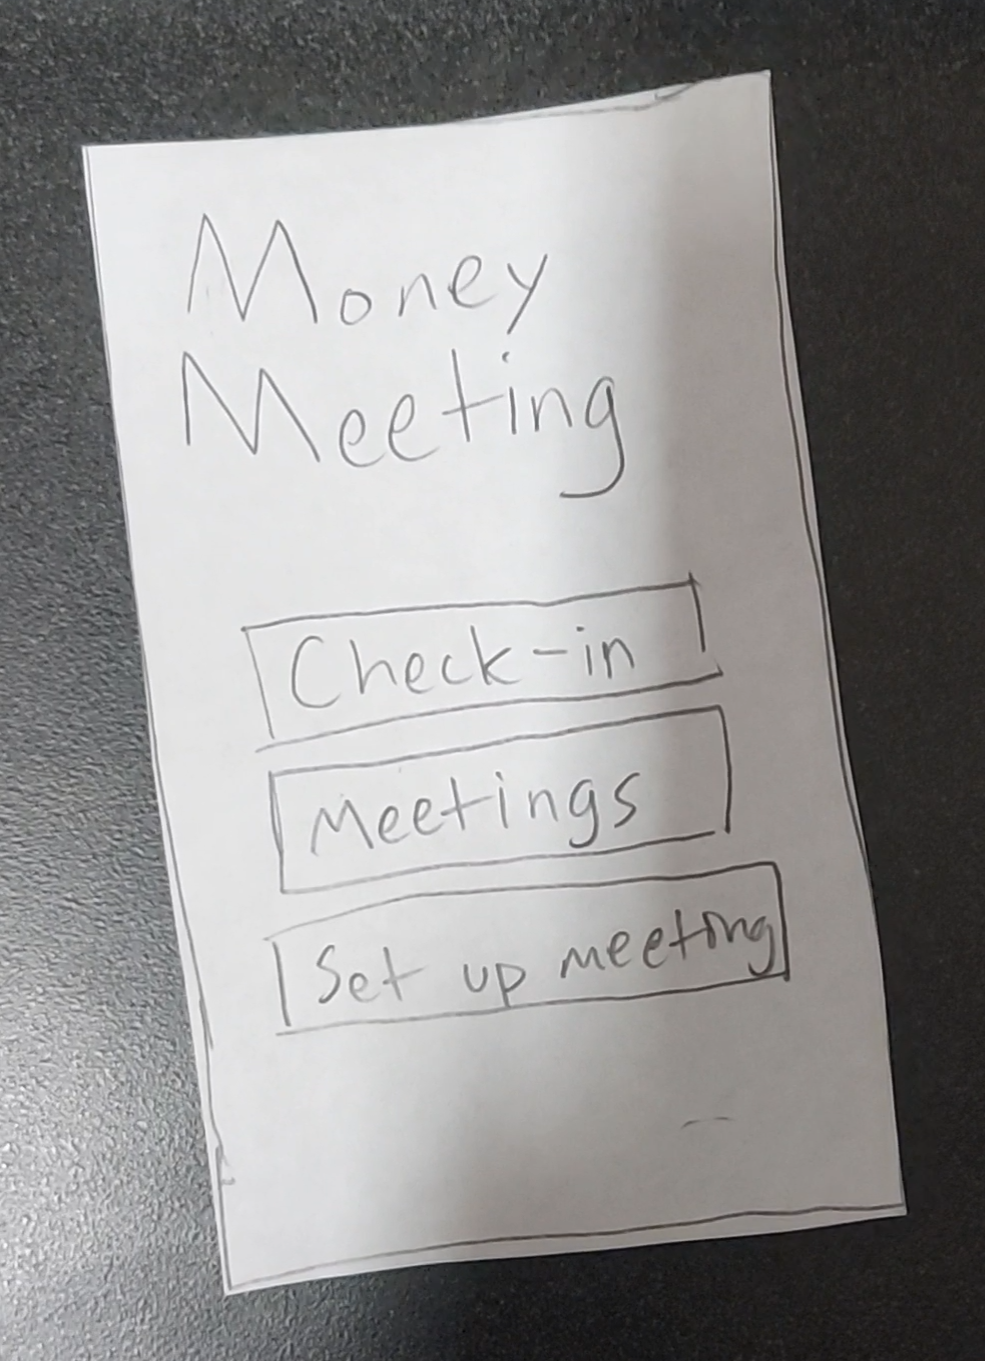 Money
Meeting
Check-in
Meetings
Set up meeting